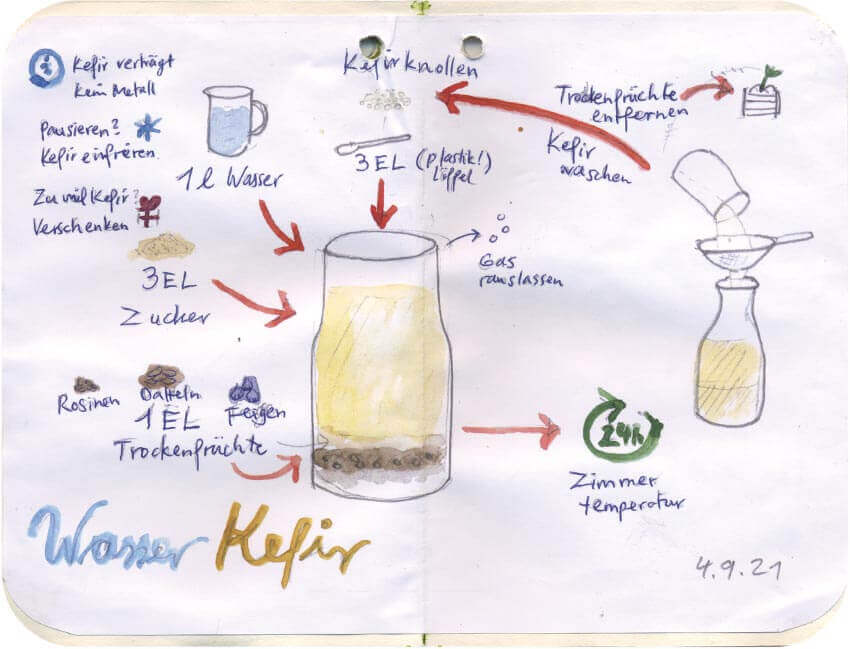 Kefir verträgt
kein Metall
Pausieren?
Kefir einfrieren
Zu viel Kefir?
Verschenken
1 l Wasser
3 EL
Zucker
Rosinen
Datteln
Feigen
1 EL
Trockenfrüchte
Kefirknollen
3 EL (Plastik!)
Löffel
Gas
rauslassen
Trockenfrüchte
entfernen
Kefir
waschen
24h
Zimmer
temperatur
Wasser Kefir
4.9.21